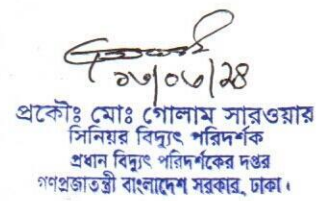 ১৩/০৩/২৪
প্রকৌঃ মোঃ গোলাম সারওয়ার
সিনিয়র বিদ্যুৎ পরিদর্শক
প্রধান বিদ্যুৎ পরিদর্শকের দপ্তর
গণপ্রজাতন্ত্রী বাংলাদেশ সরকার, ঢাকা।